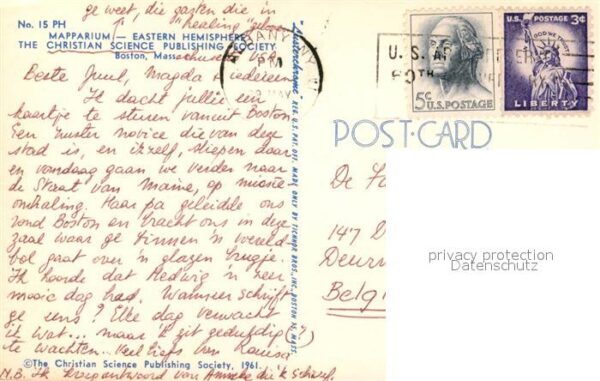 ge weet, die gasten die in
"healing" geloven
No. 15 PH
MAPPARIUM — EASTERN HEMISPHERE
THE CHRISTIAN SCIENCE PUBLISHING SOCIETY
Boston, Massachusetts USA
Beste Juul, Magda & iedereen
Ik dacht jullie een
kaartje te sturen vanuit Boston
Een zuster novice die van deze
stad is, en ikzelf, sliepen daar
en vandaag gaan we verder naar
de Staat van Maine, op
Haar pa geleidde ons
rond Boston en bracht ons in deze
zaal waar ge binnen 'n wereld-
bol gaat over 'n glazen brugje.
Ik hoorde dat Hedwig 'n zeer
mooie dag had. Wanneer schrijft
ge eens? Elke dag verwacht
ik wat... maar 'k zit geduldig (?)
te wachten... Veel liefs van
©The Christian Science Publishing Society, 1961.
N.B. Ik kreeg antwoord van Anneke die 'k schreef.
REG. U.S. PAT. OFF. MADE ONLY BY TICHNOR BROS. INC., BOSTON 15, MASS.
ALBANY, N.Y.
PM
MAY
U. S. A
60TH
5¢ U.S. POSTAGE
U.S. POSTAGE 3¢
IN GOD WE TRUST
LIBERTY
POST CARD
De
147 D
Deurn
Belg
privacy protection
Datenschutz